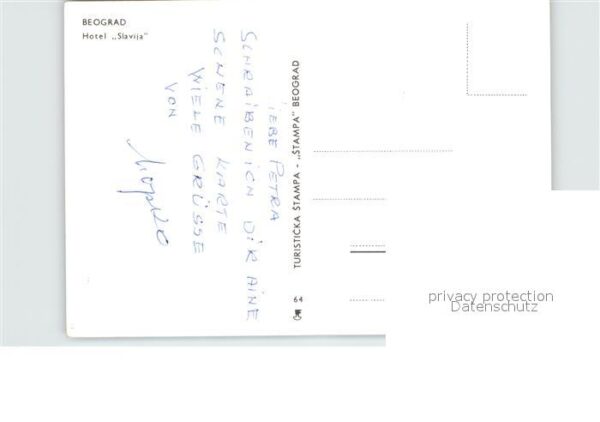 BEOGRAD
Hotel „Slavija"
iEBE PETRA
SCHRAIBENICH DIR AINE
SCHENE KARTE
WIELE GRÜSSE
VON
TURISTIČKA ŠTAMPA - „ŠTAMPA" BEOGRAD
64
privacy protection
Datenschutz